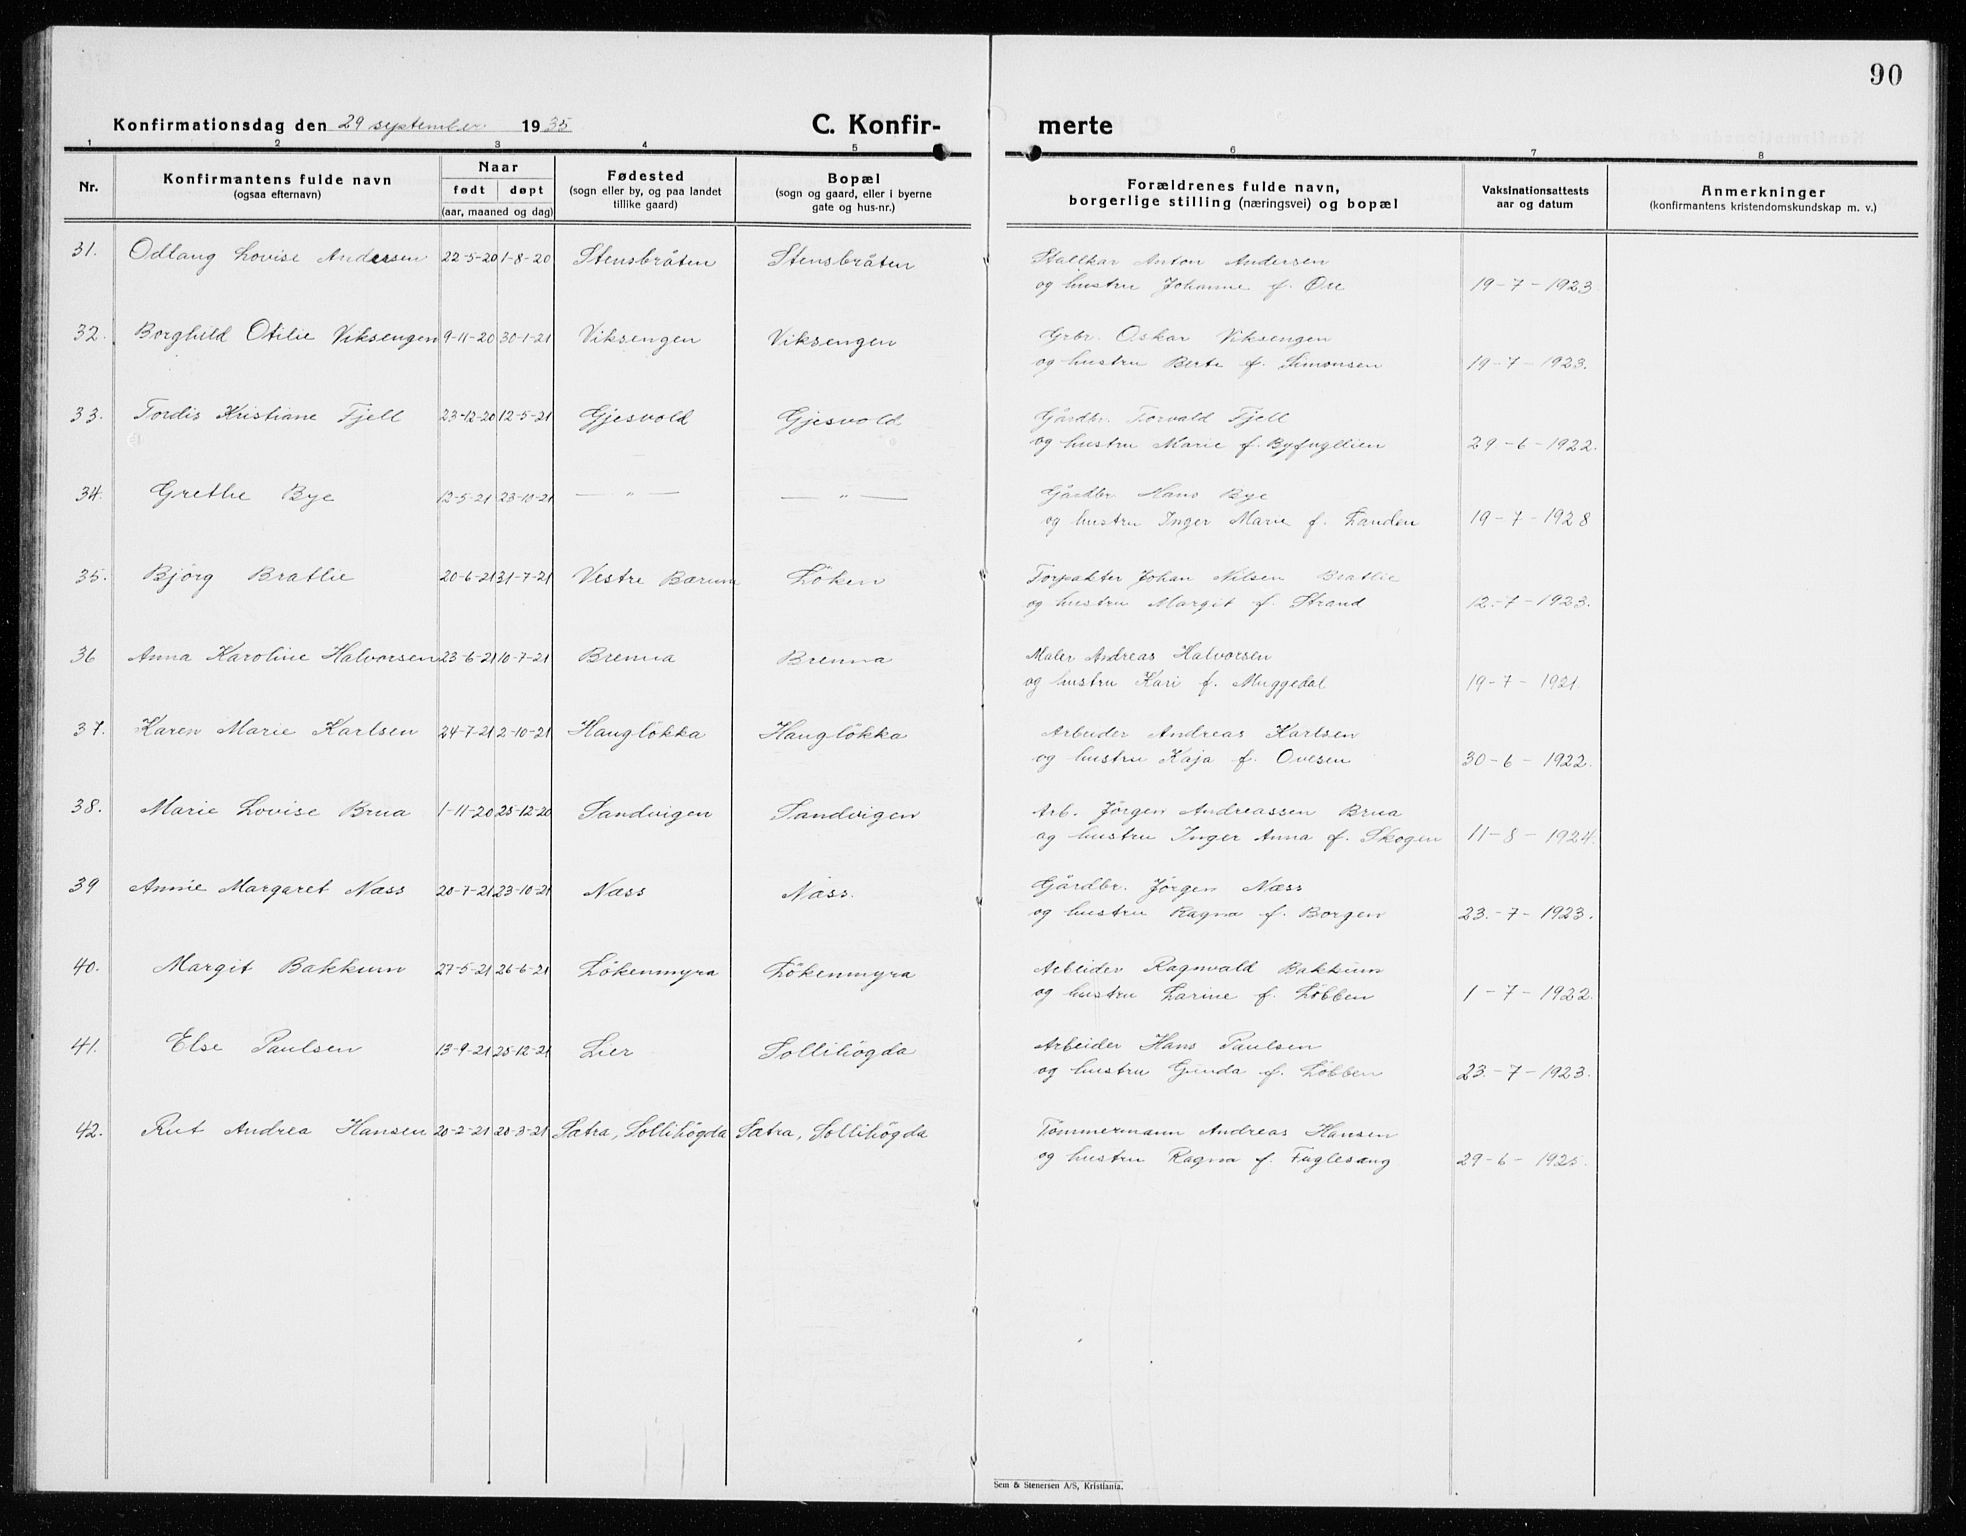 90
Konfirmationsdag den 29 september 1935 C. Konfir- merte
1 2 3 4 5 6 7 8
Nr. Konfirmantens fulde navn (ogsaa efternavn) Naar født døpt (aar, maaned og dag) Fødested (sogn eller by, og paa landet tillike gaard) Bopæl (sogn og gaard, eller i byerne gate og hus-nr.) Forældrenes fulde navn, borgerlige stilling (næringsvei) og bopæl Vaksinationsattests aar og datum Anmerkninger (konfirmantens kristendomskundskap m. v.)
31. Odlaug Lovise Andersen 22-5-20 1-8-20 Stensbråten Stensbråten Stallkar Anton Andersen
og hustru Johanne f. Øre 19-7-1923
32. Borghild Otilie Viksengen 9-11-20 30-1-21 Viksengen Viksengen Grbr. Oskar Viksengen
og hustru Berte f. Simonsen 19-7-1923.
33. Tordis Kristiane Fjell 23-12-20 12-5-21 Gjesvold Gjesvold Gårdbr. Torvald Fjell
og hustru Marie f. Byfuglien 29-6-1922.
34. Grethe Bye 12-5-21 23-10-21 — " — — " — Gårdbr. Hans Bye
og hustru Inger Marie f. Landen 19-7-1928
35. Bjørg Bratlie 20-6-21 31-7-21 Vestre Bærum Löken Forpakter Johan Nilsen Bratlie
og hustru Margit f. Strand 12.-7-1923.
36 Anna Karoline Halvorsen 23-6-21 10-7-21 Brenna Brenna Maler Andreas Halvorsen
og hustru Kari f. Muggedal 19-7-1921.
37. Karen Marie Karlsen 24-7-21 2-10-21 Haugløkka Haugløkka Arbeider Andreas Karlsen
og hustru Kaja f. Ovesen 30-6-1922.
38. Marie Lovise Brua 1-11-20 25-12-20 Sandvigen Sandvigen Arb. Jørgen Andreassen Brua
og hustru Inger Anna f. Skogen 11-8-1924.
39 Annie Margaret Næss 20-7-21 23-10-21 Næss Næss. Gårdbr. Jørgen Næss
og hustru Ragna f. Borgen 23.-7-1923.
40. Margit Bakkum 27-5-21 26-6-21 Lökenmyra Lökenmyra Arbeider Ragnvald Bakkum
og hustru Larine f. Löbben 1-7-1922.
41. Else Paulsen 13-9-21 25-12-21 Lier Sollihøgda Arbeider Hans Paulsen
og hustru Gunda f. Löbben 23-7-1923.
42. Rut Andrea Hansen 20-2-21 20-3-21 Sætra, Sollihögda Sætra, Sollihögda Tömmermann Andreas Hansen
og hustru Ragna f. Fuglesang 29-6-1925.
Sem & Stenersen A/S, Kristiania.